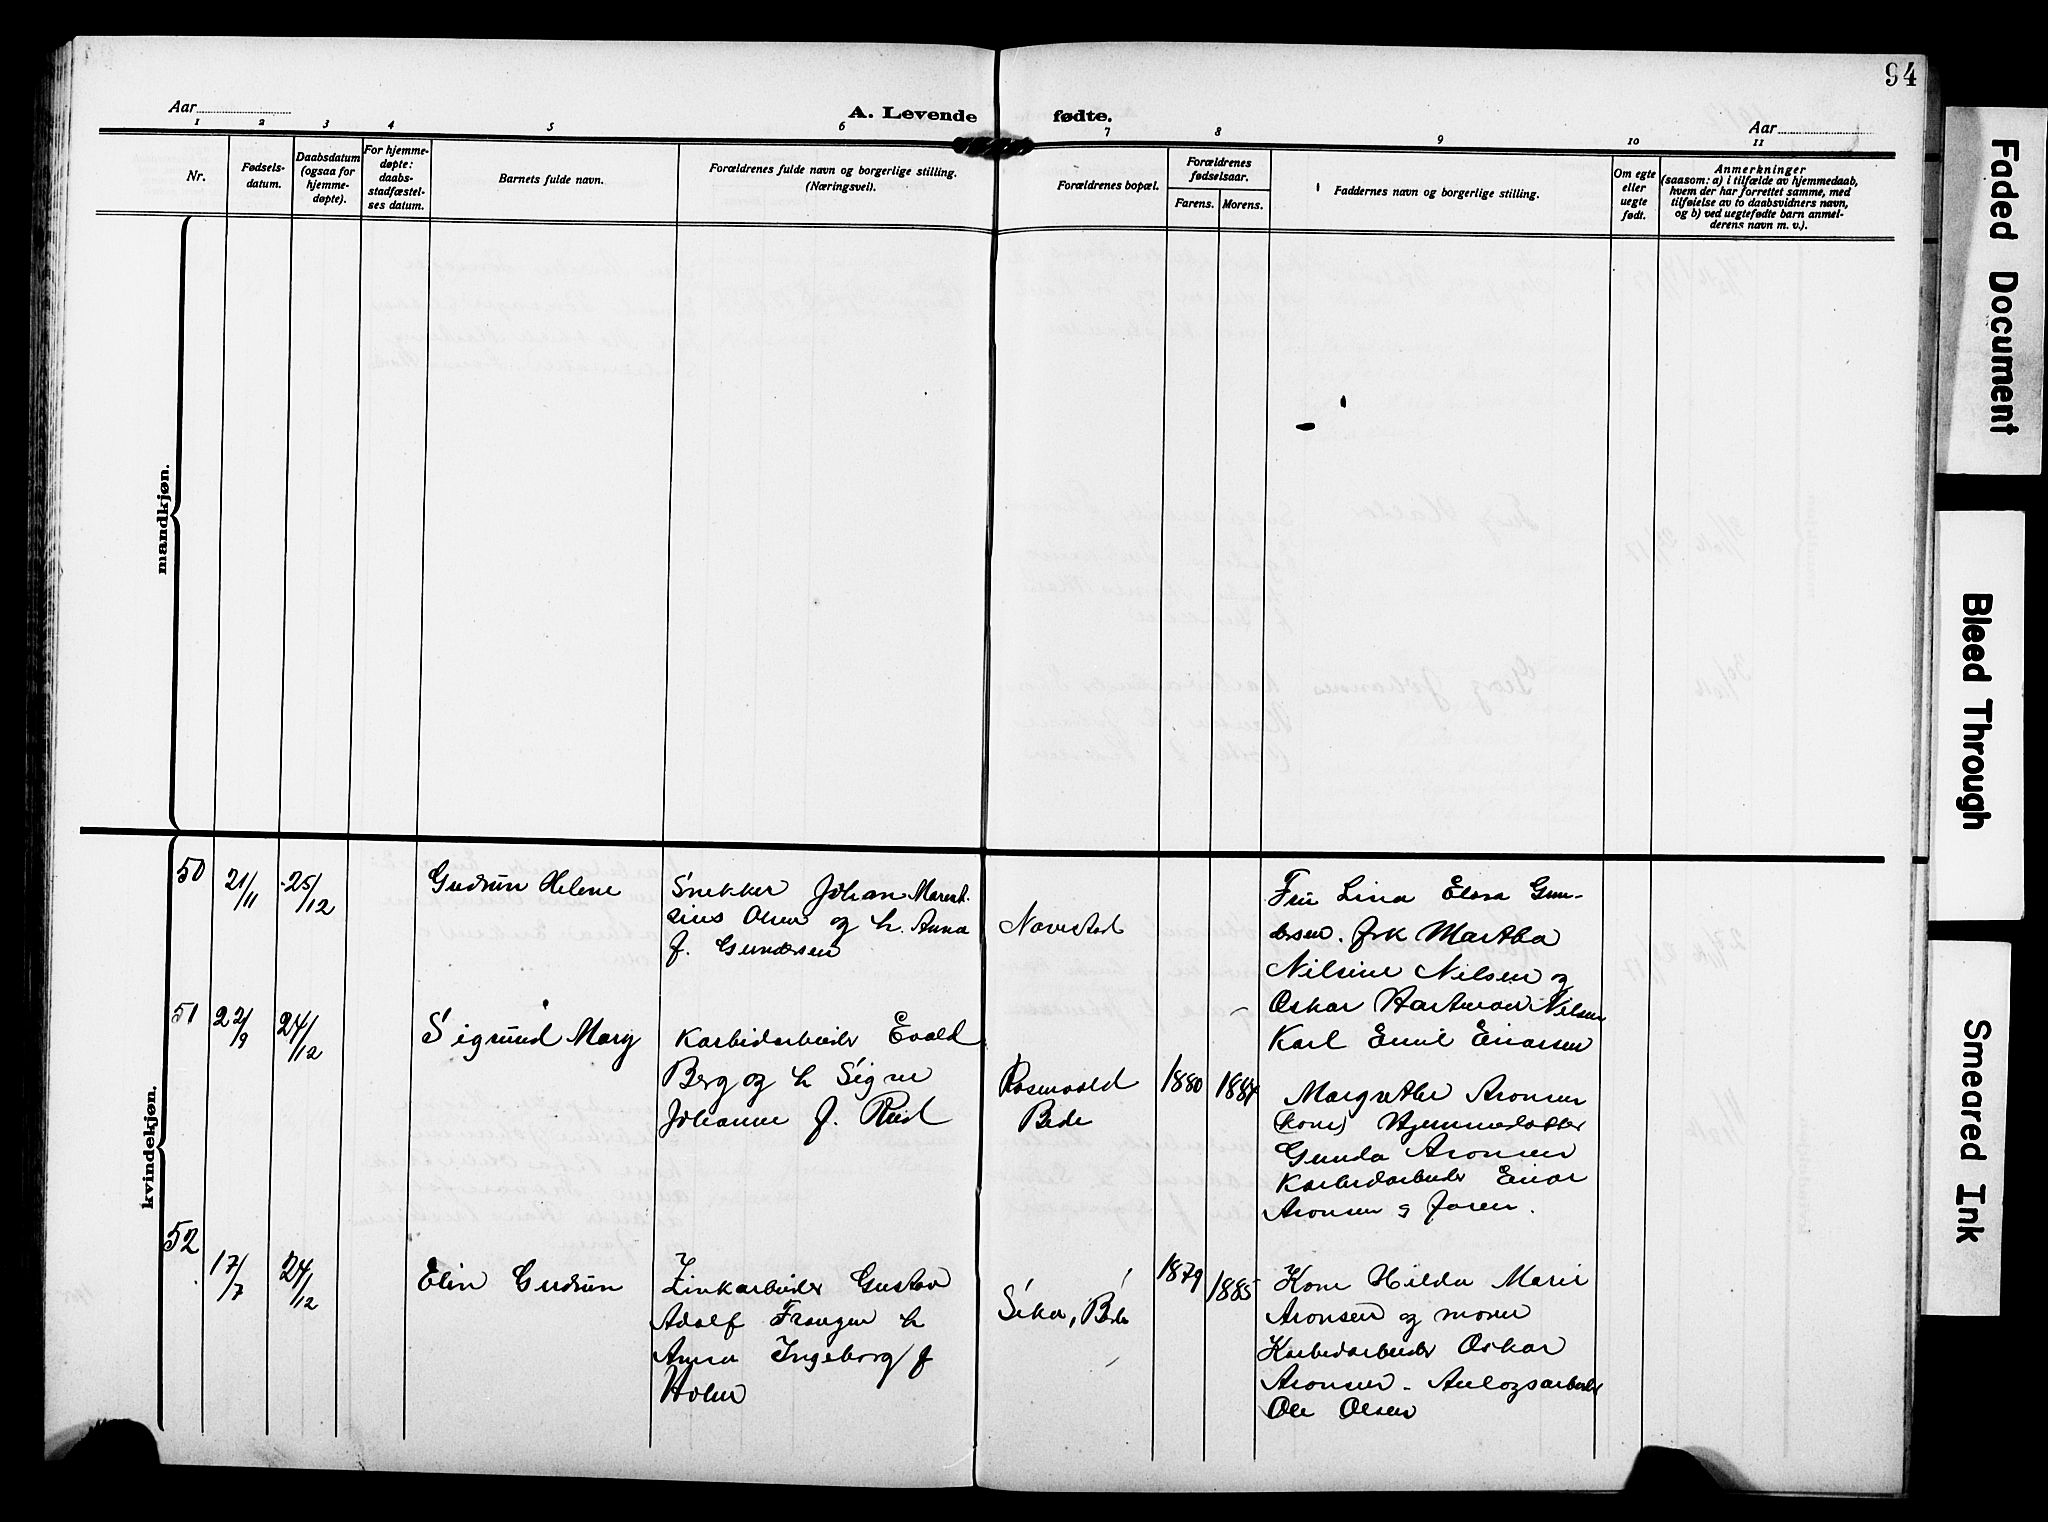 94
Aar
A. Levende fødte.
Aar
1 2 3 4 5 6 7 8 9 10 11
Nr.
Fødsels-
datum.
Daabsdatum
(ogsaa for
hjemme-
døpte).
For hjemme-
døpte:
daabs-
stadfæstel-
ses datum.
Barnets fulde navn.
Forældrenes fulde navn og borgerlige stilling.
(Næringsvei).
Forældrenes bopæl.
Forældrenes
fødselsaar.
Farens. Morens.
Faddernes navn og borgerlige stilling.
Om egte
eller
uegte
født.
Anmerkninger
(saasom: a) i tilfælde av hjemmedaab,
hvem der har forrettet samme, med
tilføielse av to daabsvidners navn,
og b) ved uegtefødte barn anmel-
derens navn m. v.).
mandkjøn.
kvindekjøn.
50
21/11
25/12
Gudrun Helene
Snekker Johan
Olsen og h. Anna
f. Gundersen
Navestad
Lina Gun-
dersen. frk Martha
Nilsine Nilsen og
Oskar Hartman Nilsen
51
22/9
24/12
Sigrund Mary
Karbidarbeider Evald
Berg og h Signe
Johanne f.
1880
Karl Emil Einarsen
Margrethe Aronsen
(kone) Hjemmedatter
Gunda Aronsen
Karbidarbeider Einar
Aronsen
52
17/7
24/12
Elin Gudrun
Zinkarbeider Gustav
Adolf h
Anna Ingeborg f
Holm
1879
1885
Kone Hilda Marie
Aronsen og moren
Karbidarbeider Oskar
Aronsen. Anlægsarbeider
Ole Olsen
Faded Document
Bleed Through
Smeared Ink